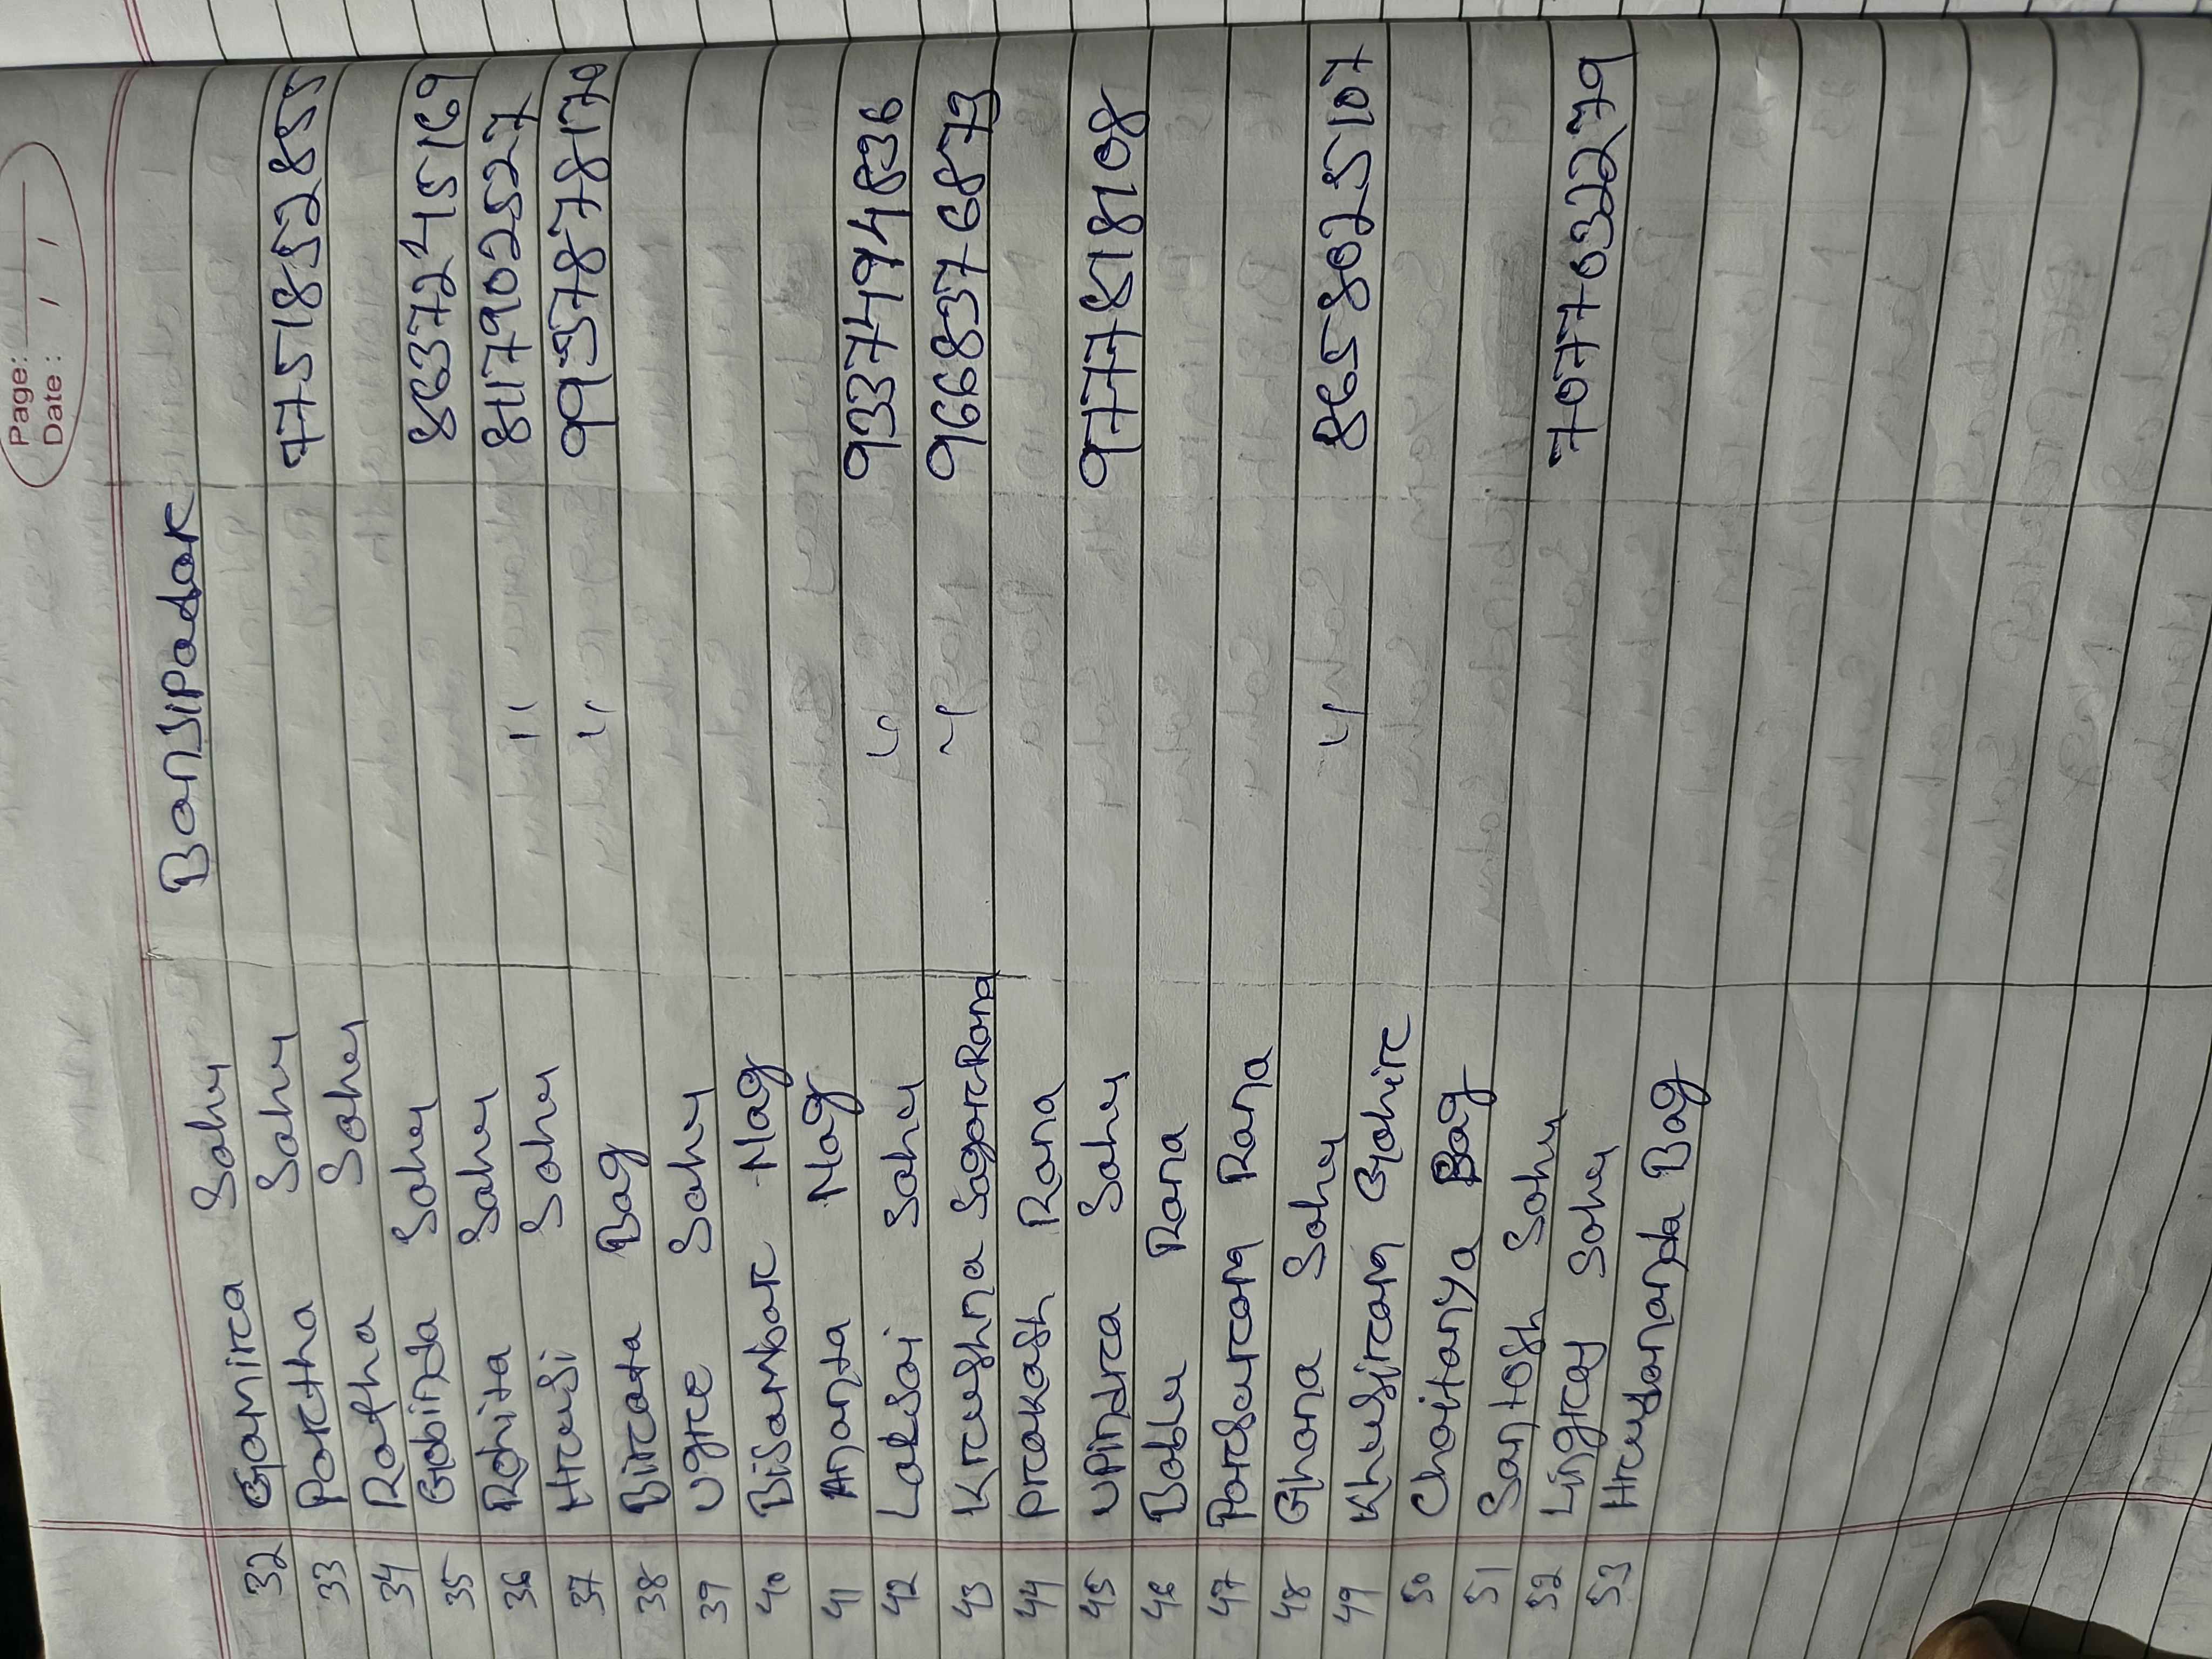 Page:
Date : / /
32 Gamira Sahu Bansipadar
33 Partha Sahu
34 Ratha Sahu 7751852855
35 Gobinda Sahu
36 Rohita Sahu 8637245169
37 Hrusi Sahu " 8117902527
38 Birata Bag " 9957878170
39 Ugre Sahu
40 Bisambar Nag
41 Ananta Nag
42 Laksai Sahu " 9337494836
43 Krushna Sagar Rana " 9668376873
44 Prakash Rana
45 Upindra Sahu 9777818108
46 Bablu Rana
47 Parsuram Rana
48 Ghana Sahu " 8658025107
49 Khusiram Gahir
50 Chaitanya Bag
51 Santosh Sahu
52 Lingraj Sahu 7077032279
53 Hrusananda Bag